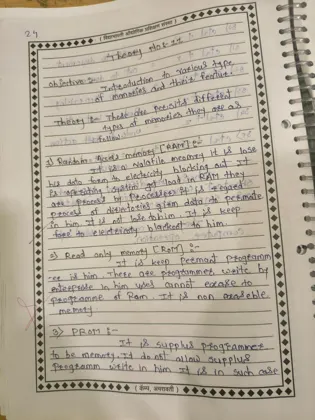 29
Theory No:- 11
Objective :-
Introduction to various type
of memories and their features.
Theory :- These are provided different
types of memories they are as
follow
1) Random Access memory [RAM] :-
It is a volatile memory. It is lose
his data form to electricity blocking out It
is operating system get load in RAM they
are process by processers it is regard
process of directories given data to permate
in him It is not lose to him. It is keep
free to electricity blackout to him.
2) Read only memory [ROM] :-
It is keep permant programm
is him. There are programmer write by
in him uses cannot excase to
programme of Rom. It is non
memory
3) PROM :-
It is supplus programmer
to be memory. It do not allow supplus
programm write in him It is in such case